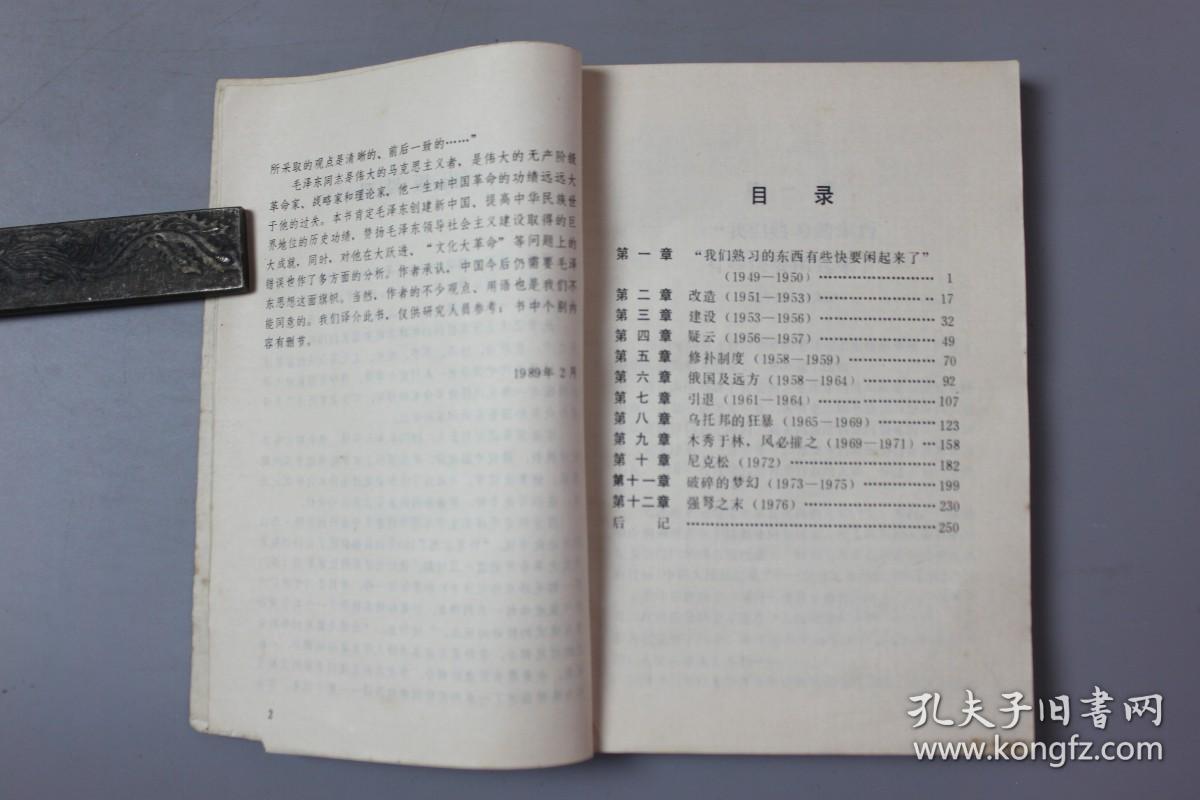 所采取的观点是清晰的、前后一致的……”
毛泽东同志是伟大的马克思主义者，是伟大的无产阶级
革命家、战略家和理论家，他一生对中国革命的功绩远远大
于他的过失。本书肯定毛泽东创建新中国、提高中华民族世
界地位的历史功绩，赞扬毛泽东领导社会主义建设取得的巨
大成就，同时，对他在大跃进、“文化大革命”等问题上的
错误也作了多方面的分析。作者承认，中国今后仍需要毛泽
东思想这面旗帜。当然，作者的不少观点、用语也是我们不
能同意的。我们译介此书，仅供研究人员参考；书中个别内
容有删节。
1989年2月
2
目 录
第一章 “我们熟习的东西有些快要闲起来了”
(1949—1950) ……………… 1
第二章 改造(1951—1953) ……………… 17
第三章 建设(1953—1956) ……………… 32
第四章 疑云(1956—1957) ……………… 49
第五章 修补制度(1958—1959) ……………… 70
第六章 俄国及远方(1958—1964) ……………… 92
第七章 引退(1961—1964) ……………… 107
第八章 乌托邦的狂暴(1965—1969) ……………… 123
第九章 木秀于林，风必摧之(1969—1971) … 158
第十章 尼克松(1972) ……………… 182
第十一章 破碎的梦幻(1973—1975) ……………… 199
第十二章 强弩之末(1976) ……………… 230
后 记 ……………… 250
孔夫子旧書网
www.kongfz.com